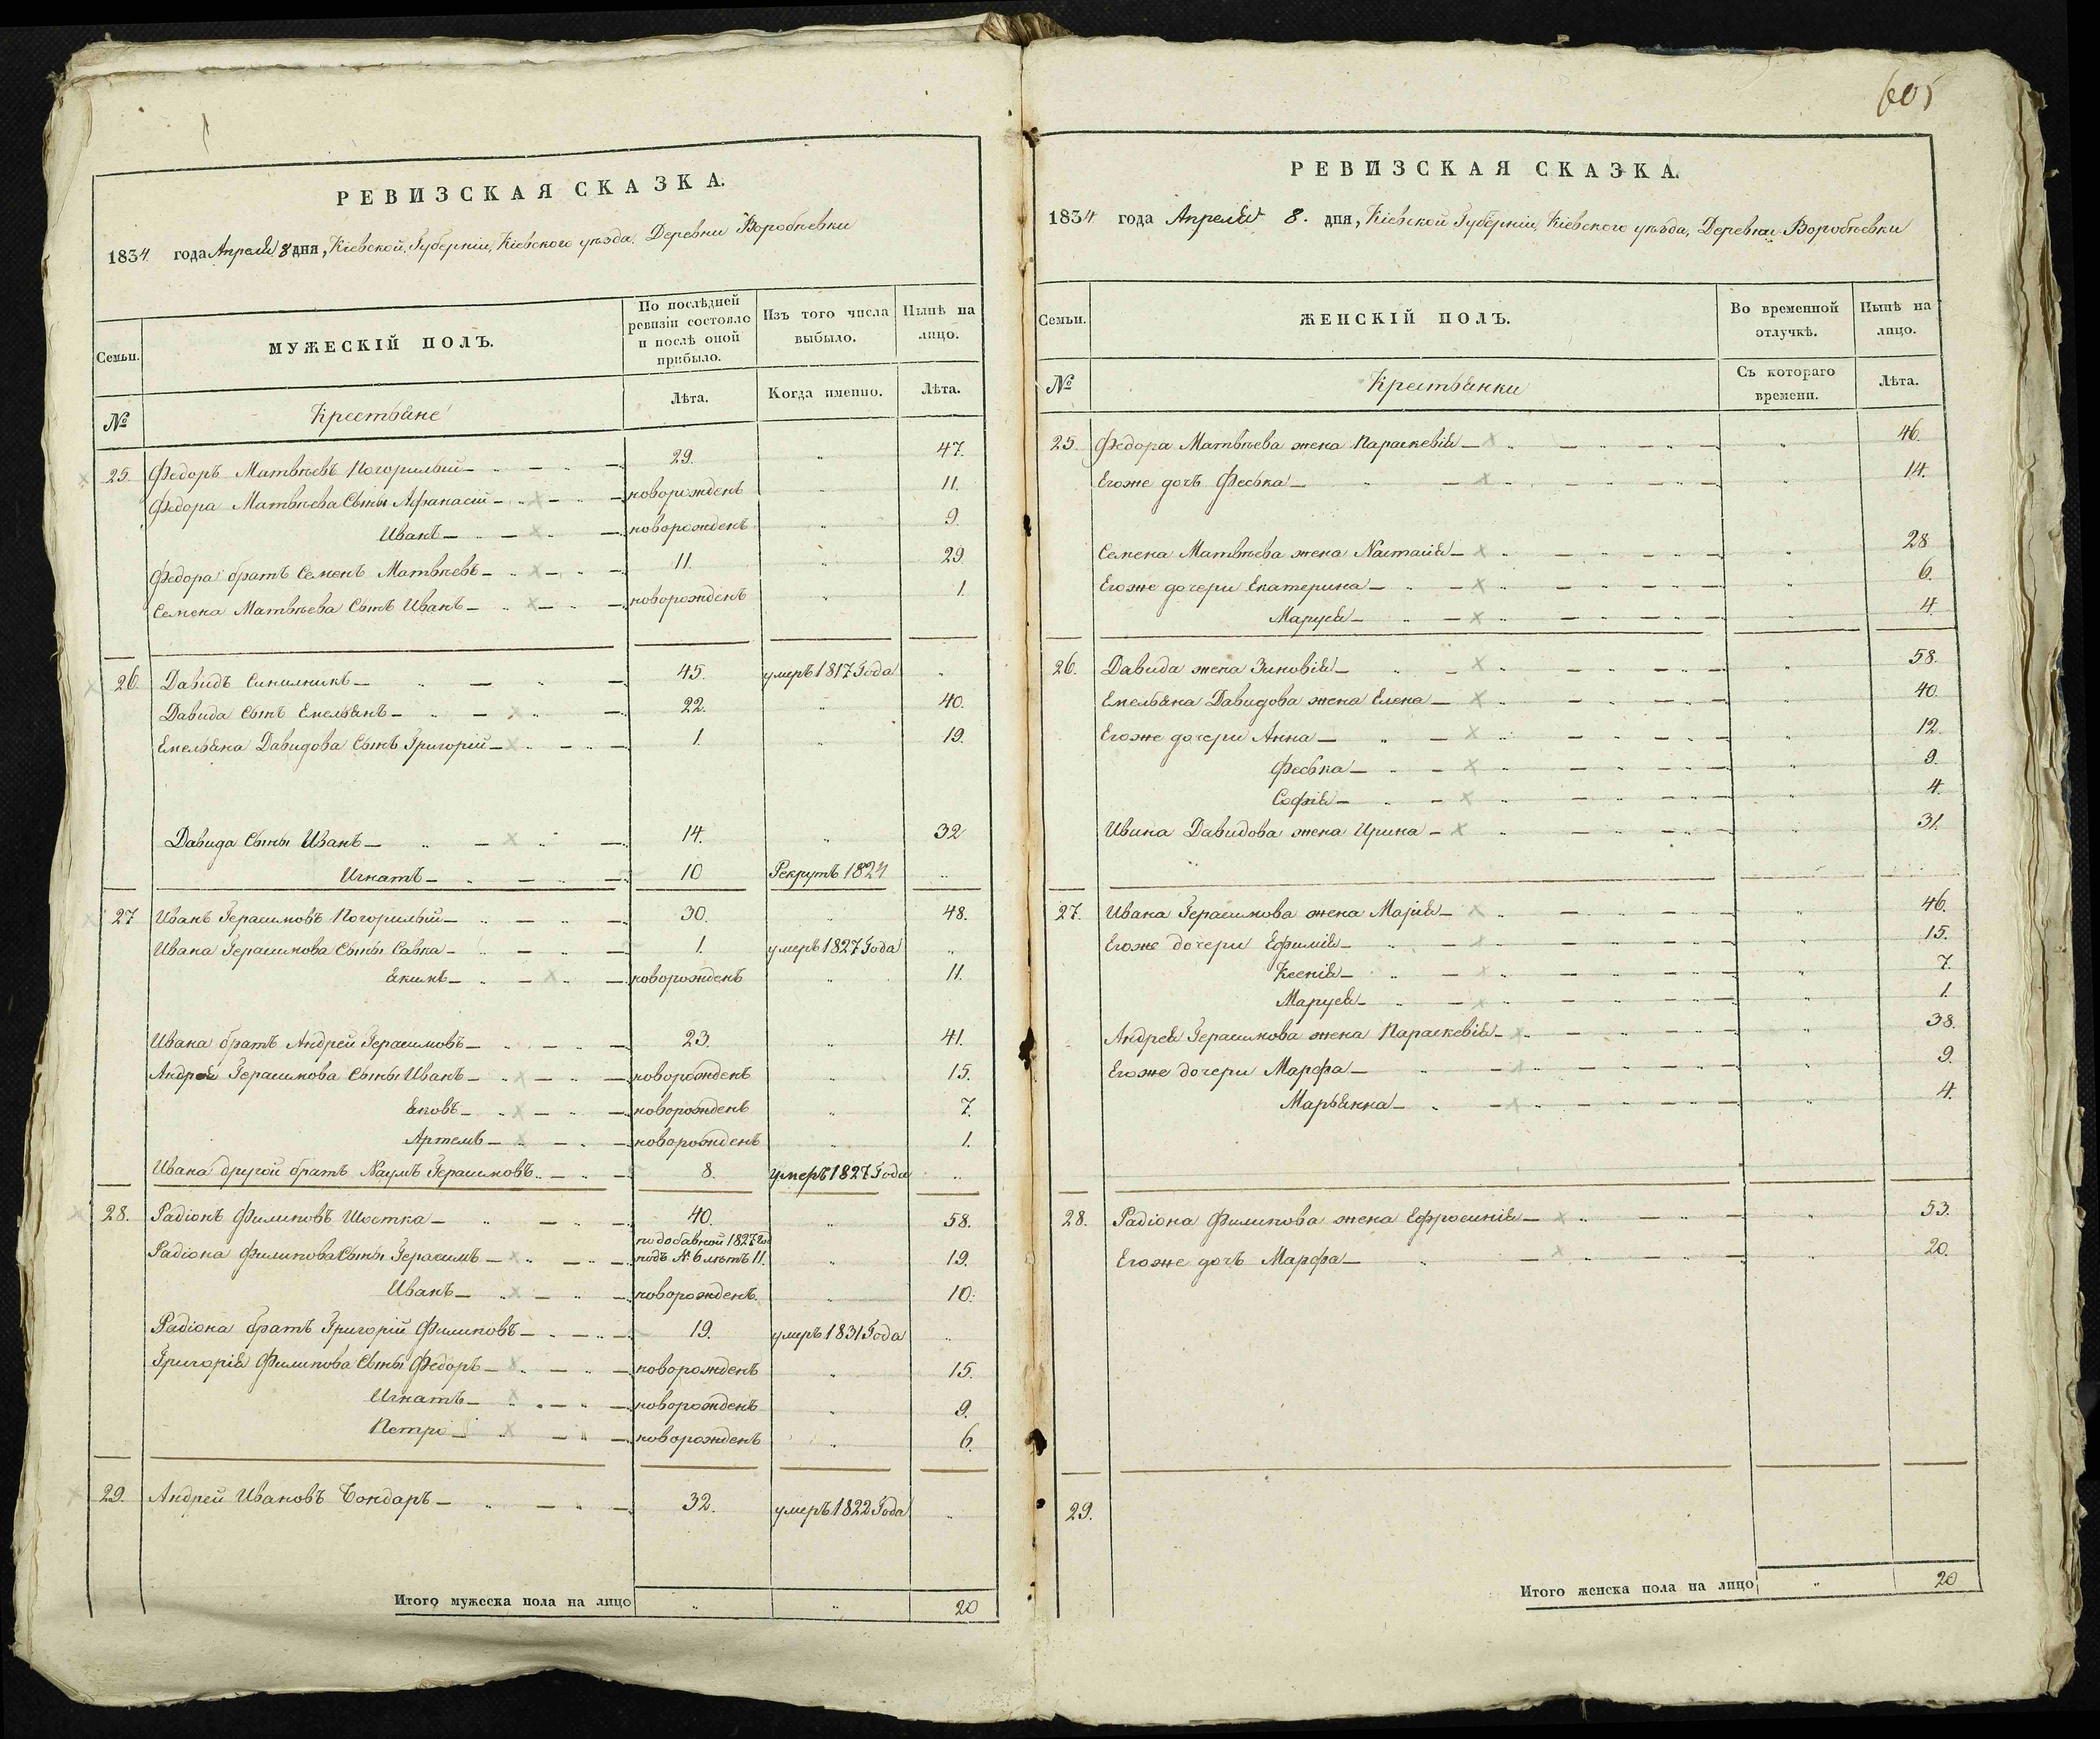 605
РЕВИЗСКАЯ СКАЗКА.
1834 года Апреля 8 дня, Кіевской Губерніи, Кіевского уѣзда. Деревни Воробѣевки
Семьи.
МУЖЕСКІЙ ПОЛЪ.
По послѣдней ревизіи состояло и послѣ оной прибыло.
Изъ того числа выбыло.
Нынѣ на лицо.
№
Крестьяне
Лѣта.
Когда именно.
Лѣта.
25. Федоръ Матвѣевъ Погорилый — 29. " 47.
Федора Матвѣева Сыны Афанасій — новорожденъ " 11.
Иванъ — новорожденъ " 9.
Федора братъ Семенъ Матвѣевъ — 11. " 29
Семена Матвѣева Сынъ Иванъ — новорожденъ " 1.
26. Давидъ Синилникъ — 45. умеръ 1817 Года "
Давида Сынъ Емельянъ — 22. " 40.
Емельяна Давидова Сынъ Григорій — 1. " 19.
Давида Сыны Иванъ — 14. " 32
Игнатъ — 10 Рекрутъ 1824 "
27 Иванъ Герасимовъ Погорилый — 30. " 48.
Ивана Герасимова Сыны Савка — 1. умеръ 1827 Года "
Якимъ — новорожденъ " 11.
Ивана братъ Андрей Герасимовъ — 23. " 41.
Андрея Герасимова Сыны Иванъ — новорожденъ " 15.
Яковъ — новорожденъ " 7.
Артемъ — новорожденъ " 1.
Ивана другой братъ Наумъ Герасимовъ — 8. умеръ 1827 Года "
28. Радіонъ Филиповъ Шостка — 40. " 58.
подобавной 1827 Го
Радіона Филипова Сыны Герасимъ — подъ № 6 лѣтъ 11. " 19.
Иванъ — новорожденъ " 10.
Радіона братъ Григорій Филиповъ — 19. умеръ 1831 Года "
Григорія Филипова Сыны Федоръ — новорожденъ " 15.
Игнатъ — новорожденъ " 9.
Петро — новорожденъ " 6.
29. Андрей Ивановъ Бондаръ — 32. умеръ 1822 Года "
Итого мужеска пола на лицо " " 20
РЕВИЗСКАЯ СКАЗКА.
1834 года Апреля 8. дня, Кіевской Губерніи, Кіевского уѣзда, Деревни Воробѣевки
Семьи.
ЖЕНСКІЙ ПОЛЪ.
Во временной отлучкѣ.
Нынѣ на лицо.
№
Крестьянки
Съ котораго времени.
Лѣта.
25. Федора Матвѣева жена Параскевія — " 46.
Егоже дочь Феська — " 14.
Семена Матвѣева жена Настасія — " 28
Егоже дочери Екатерина — " 6.
Маруся — " 4.
26. Давида жена Зиновія — " 58.
Емельяна Давидова жена Елена — " 40.
Егоже дочери Анна — " 12.
Феська — " 9.
Софія — " 4.
Ивана Давидова жена Ирина — " 31.
27. Ивана Герасимова жена Марія — " 46.
Егоже дочери Ефимія — " 15.
Ксенія — " 7.
Маруся — " 1.
Андрея Герасимова жена Параскевія — " 38.
Егоже дочери Марфа — " 9.
Марьянна — " 4.
28. Радіона Филипова жена Ефросинія — " 53.
Егоже дочь Марфа — " 20.
29.
Итого женска пола на лицо " 20